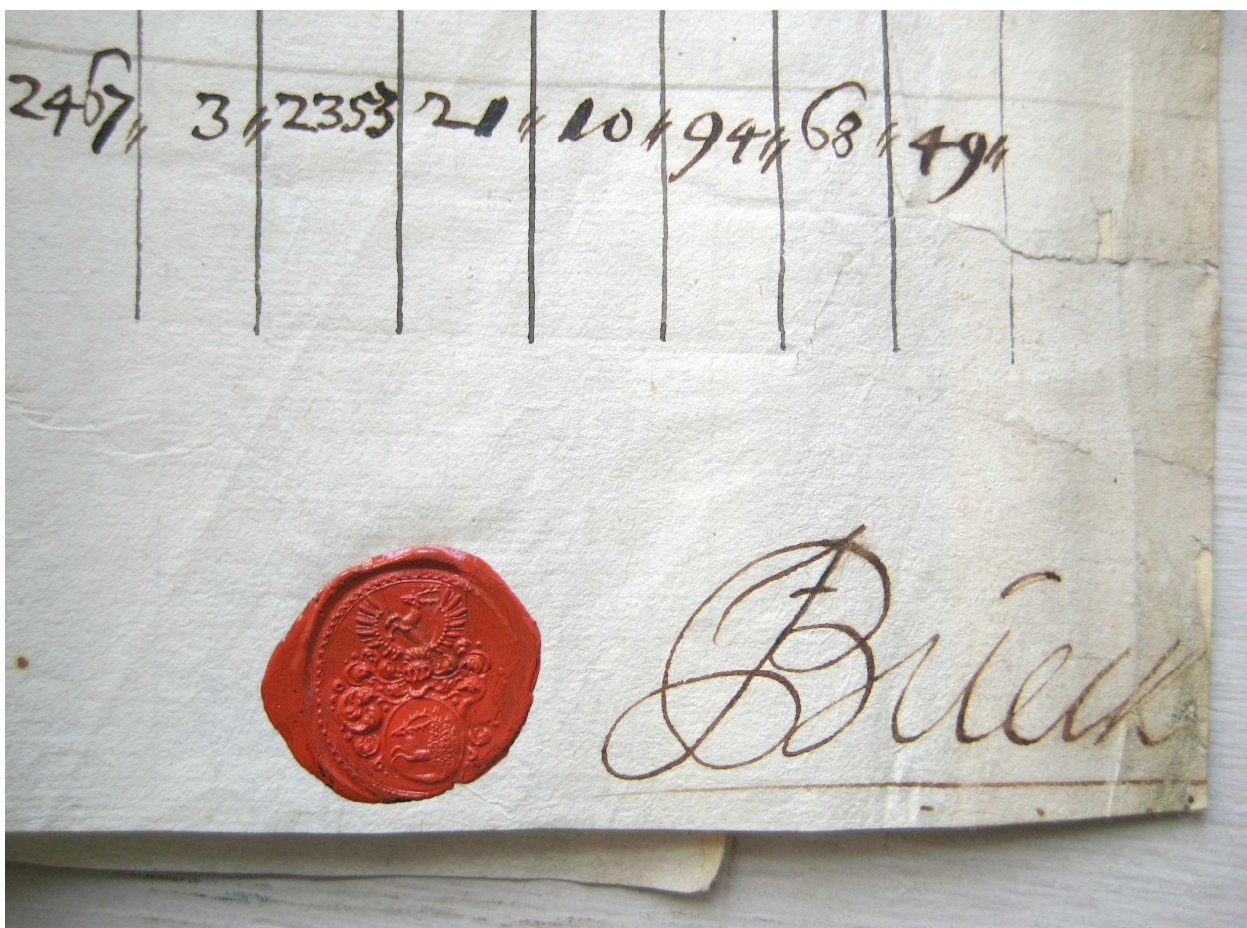 2467 〃 3 〃 2353 21 〃 10 〃 94 〃 68 〃 49 〃
Brieck